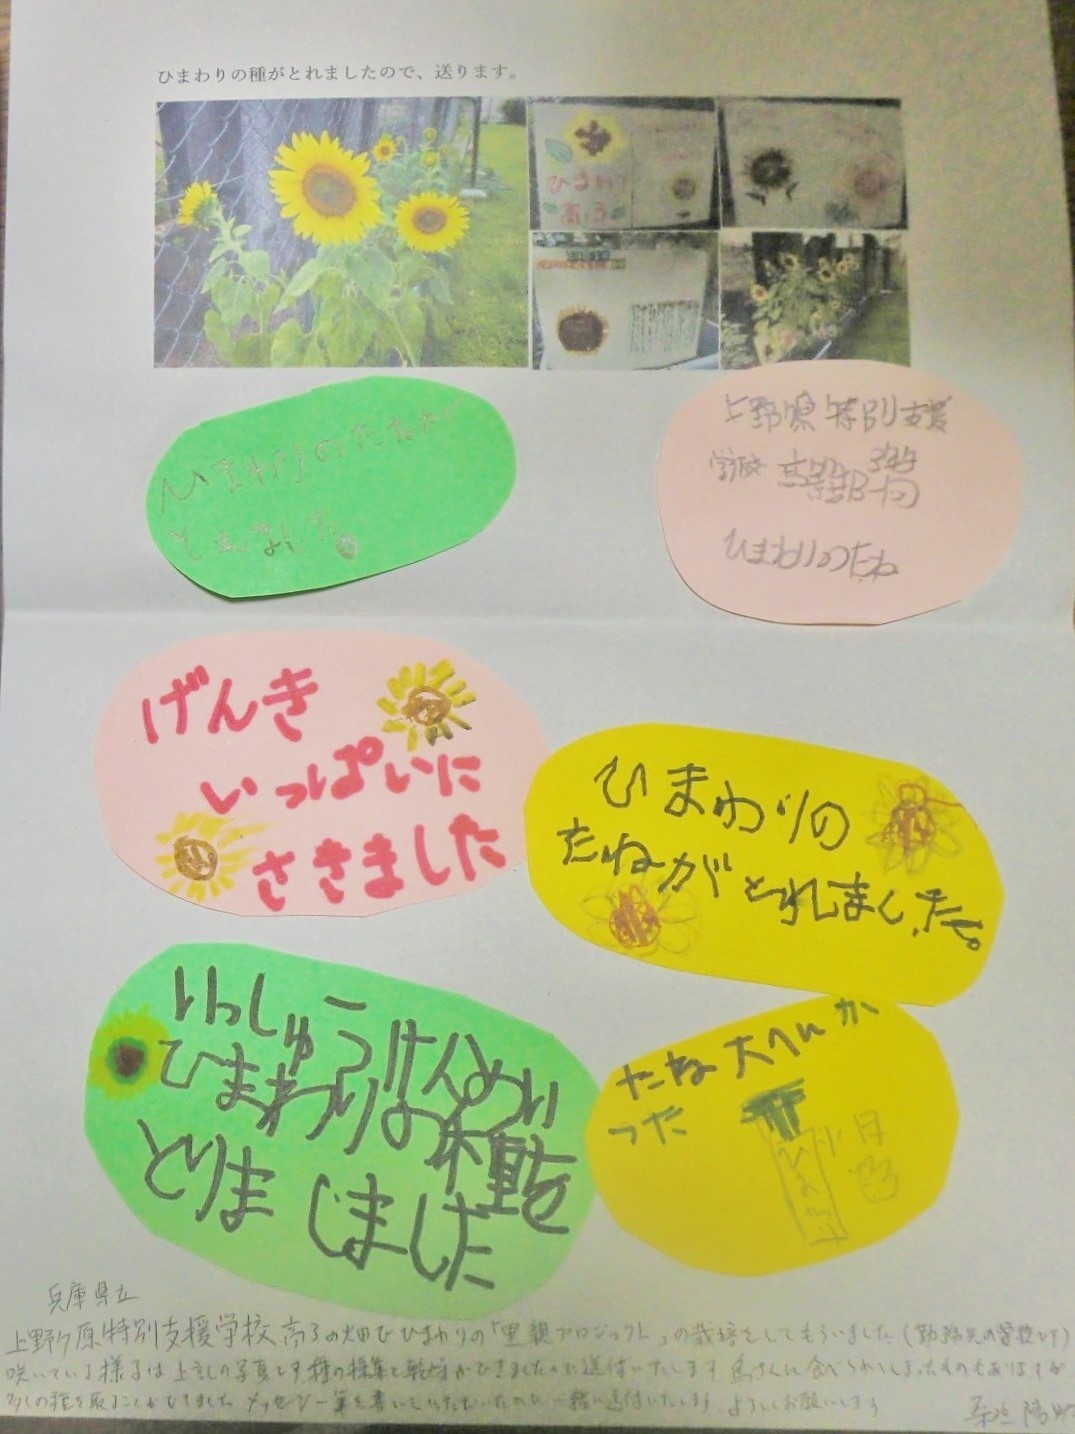 ひまわりの種がとれましたので、送ります。
ひまわり
高3
ひまわりのたねが
とれました。
上野ケ原特別支援
学校 高等部
ひまわりのたね
げんき
いっぱいに
さきました
ひまわりの
たねがとれました。
いっしょうけんめい
ひまわりの種を
とりま
じました
たね大へんか
った
ひまわり
兵庫県立
上野ケ原特別支援学校 高3の畑でひまわりの「里親プロジェクト」の栽培をしてもらいました(勤務先の学校です)
咲いている様子は上記の写真です 種の採集と乾燥ができましたので送付いたします 鳥さんに食べられてしまったものもありますが
多くの種を取ることができました メッセージ 一緒に送付いたします よろしくお願いします